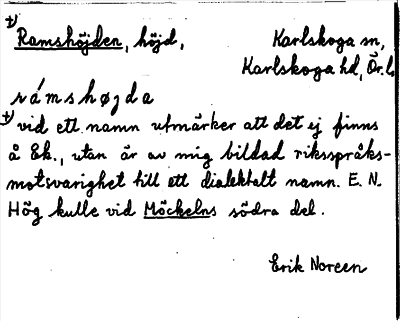 †) Ramshöjden, höjd, Karlskoga sn,
Karlskoga hd, Ör. l.
rámshøjda
†) vid ett namn utmärker att det ej finns
å Ek., utan är av mig bildad riksspråks-
motsvarighet till ett dialektalt namn. E. N.
Hög kulle vid Möckelns södra del.
Erik Noreen